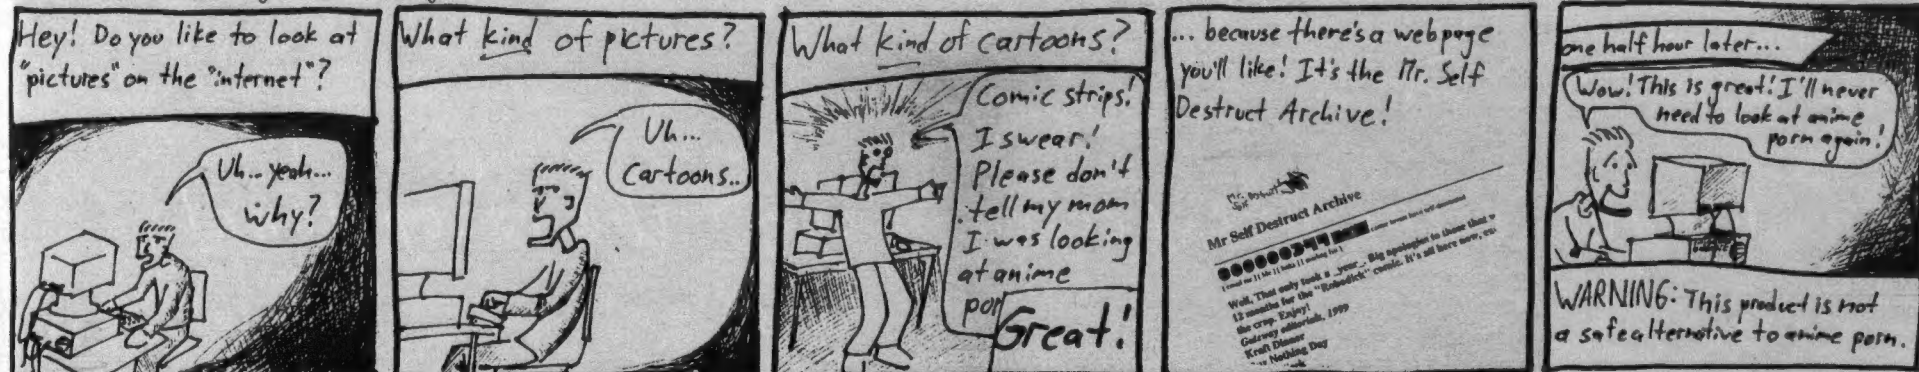 Hey! Do you like to look at
"pictures" on the "internet"?
Uh... yeah...
why?
What kind of pictures?
Uh...
Cartoons..
What kind of cartoons?
Comic strips!
I swear!
Please don't
tell my mom
I was looking
at anime
por
Great!
... because there's a webpage
you'll like! It's the Mr. Self
Destruct Archive!
Mr Self Destruct Archive
Well, That only took a _year_. Big apologies to those that
12 months for the "Robodick" comic. It's all here now,
the crop. Enjoy!
Gateway editorials, 1999
Kraft Dinner
Nothing Day
one half hour later...
Wow! This is great! I'll never
need to look at anime
porn again!
WARNING: This product is not
a safe alternative to anime porn.